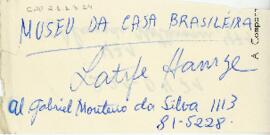 MUSEU DA CASA BRASILEIRA
Latife Hamze
Al Gabriel Monteiro da Silva 1113
81-5228.